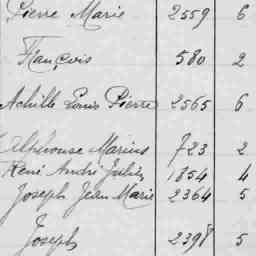 Pierre Marie 2559 6
François 580 2
Achille Louis Pierre 2565 6
Alphonse Marius 723 2
René André Julien 1854 4
Joseph Jean Marie 2364 5
Joseph 2398 5